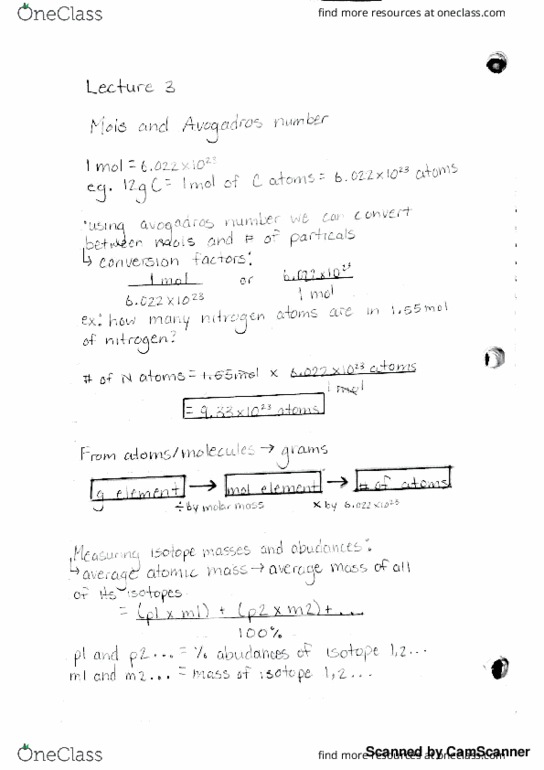 OneClass find more resources at oneclass.com
Lecture 3
Mols and Avogadros number
1 mol = 6.022x10²³
eg. 12g C = 1mol of C atoms = 6.022x10²³ atoms
·using avogadros number we can convert
between mols and # of particals
↳ conversion factors:
1 mol or 6.022x10²³
6.022x10²³ 1 mol
ex: how many nitrogen atoms are in 1.55mol
of nitrogen?
# of N atoms = 1.55mol x 6.022x10²³ atoms
1 mol
= 9.33x10²³ atoms
From atoms/molecules → grams
g element → mol element → # of atoms
÷ by molar mass x by 6.022x10²³
Measuring isotope masses and abudances:
↳ average atomic mass → average mass of all
of its isotopes
= (p1 x m1) + (p2 x m2) + ...
100%
p1 and p2... = % abudances of isotope 1,2...
m1 and m2... = mass of isotope 1,2...
OneClass find more resources at oneclass.com
Scanned by CamScanner